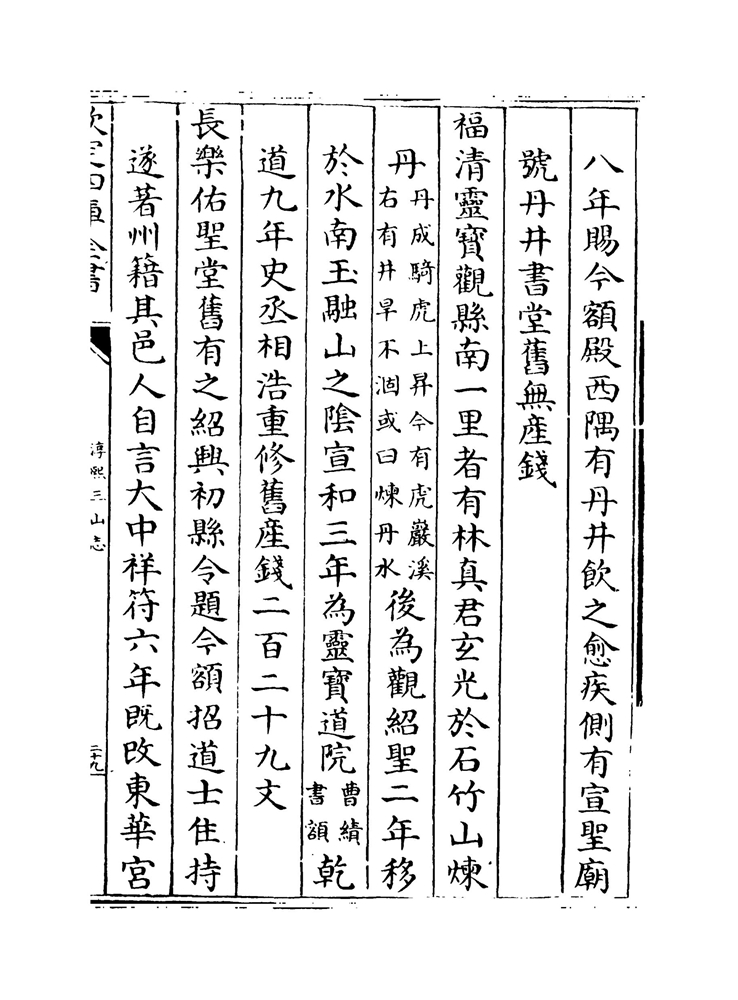 八年賜今額殿西隅有丹井飲之愈疾側有宣聖廟
號丹井書堂舊無産錢
福清靈寳觀縣南一里者有林真君玄光於石竹山煉
丹丹成騎虎上昇今有虎巖溪右有井旱不涸或曰煉丹水後為觀紹聖二年移
於水南玉融山之陰宣和三年為靈寳道院曹績書額乾
道九年史丞相浩重修舊産錢二百二十九文
長樂佑聖堂舊有之紹興初縣令題今額招道士住持
遂著州籍其邑人自言大中祥符六年既改東華宮
欽定四庫全書
淳熙三山志
二十九